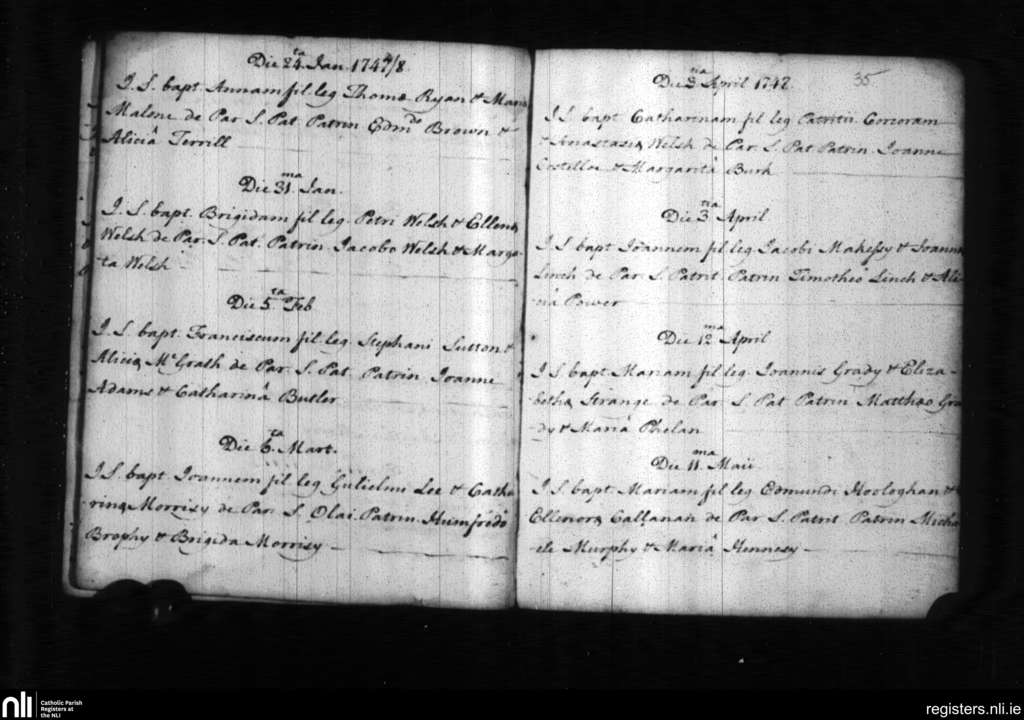 Die 24.ta Jan. 1747/8
I. S. bapt. Annam fil leg Thomæ Ryan & Mariæ
Malone de Par S. Pat Patrin Edm.do Brown &
Aliciâ Terrill
Die 31.ma Jan.
I. S. bapt. Brigidam fil leg. Petri Welsh & Ellenæ
Welsh de Par. S. Pat. Patrin Jacobo Welsh & Marga-
ta Welsh
Die 5.ta Feb
I. S. bapt. Franciscum fil leg. Stephani Sutton &
Aliciæ Mc.Grath de Par. S. Pat. Patrin Joanne
Adams & Catharinâ Butler
Die 6.ta Mart.
I S. bapt Joannem fil leg Gulielmi Lee & Catha
-rinæ Morrisy de Par. S. Olai Patrin Humfrido
Brophy & Brigida Morrisy
35
Die 3tia April 1747
I S bapt Catharinam fil leg Patritii Corcoram
& Anastasiæ Welsh de Par. S. Pat Patrin Joanne
Costelloe & Margaritâ Burk
Die 3tia April
I S. bapt Joannem fil leg Jacobi Makessy & Joannæ
Linch de Par S. Patrit Patrin Timotheo Linch & Ali-
Power
Die 12ma April
I S bapt Mariam fil leg. Joannis Grady & Eliza-
bethæ Strange de Par S. Pat Patrin Matthæo Gra
dy & Mariâ Phelan
Die 11.ma Maii
I S. bapt Mariam fil leg Edmundi Hoologhan &
Ellenoræ Callanan de Par S. Patrit Patrin Micha
-ele Murphy & Mariâ Hennesy
nli
Catholic Parish
Registers at
the NLI
registers.nli.ie